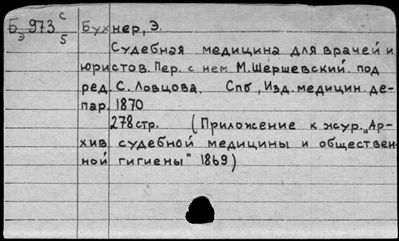 Б 973 с Бухнер, Э.
э 5
Судебная медицина для врачей и
юристов. Пер. с нем М. Шершевский. под
ред. С. Ловцова. Спб, Изд. медицин. де-
пар. 1870
278 стр. (Приложение к жур. „Ар-
хив судебной медицины и обществен
ной гигиены" 1869)